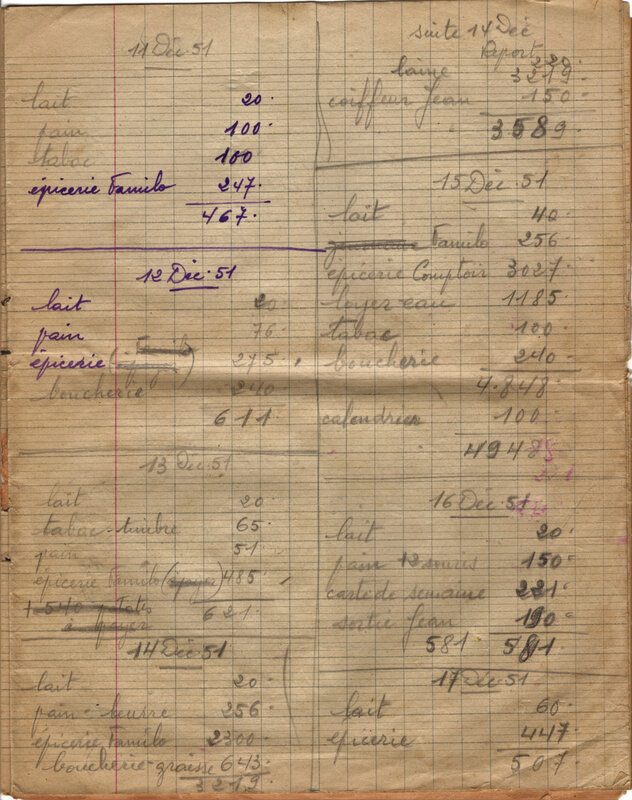 11 Déc. 51
lait 20.
pain 100.
tabac 100
épicerie Familo 247.
467.
12 Déc. 51
lait 20
pain 76.
Familo
épicerie ( ) 275.
boucherie 240
611
13 Déc. 51
lait 20
tabac-timbre 65
pain 51.
épicerie Familo (à payer) 485
+ 540 à payer 621.
14 Déc. 51
lait 20.
pain - beurre 256
épicerie Familo 2300.
boucherie-graisse 643
3219.
suite 14 Déc
Report 3219.
laine 220.
coiffeur Jean 150.
3589.
15 Déc. 51
lait 40.
Familo 256.
épicerie Comptoir 3027.
loyer-eau 1185
tabac 100.
boucherie 240
4.848.
calendrier 100.
4948
16 Déc. 51
lait 20.
pain 150
carte de semaine 221
sortie Jean 190
581 581.
17 Déc. 51
lait 60.
épicerie 447
507